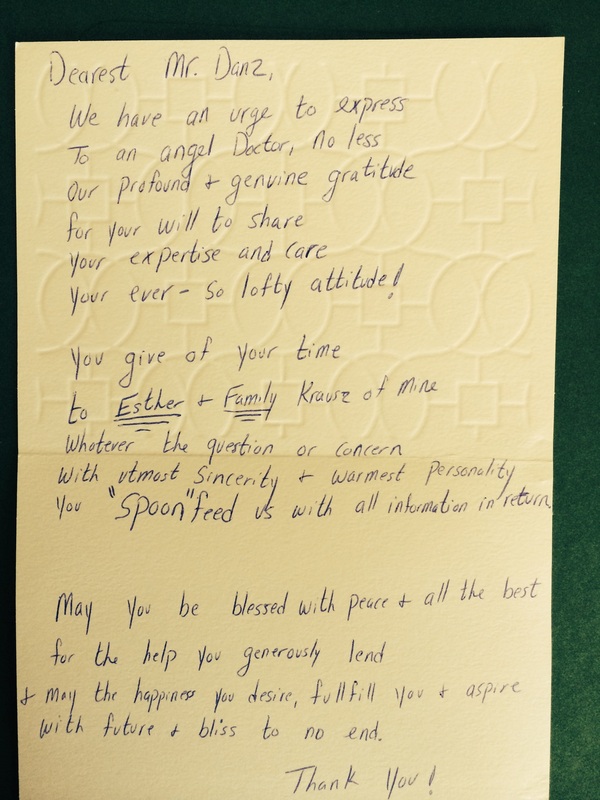 Dearest Mr. Danz,
We have an urge to express
To an angel Doctor, no less
Our profound & genuine gratitude
for your will to share
your expertise and care
Your ever - so lofty attitude!
You give of your time
to Esther & Family Krausz of mine
Whatever the question or concern
With utmost sincerity & warmest personality
You "Spoon" feed us with all information in return.
May you be blessed with peace & all the best
for the help you generously lend
& may the happiness you desire, fullfill you & aspire
with future & bliss to no end.
Thank You!